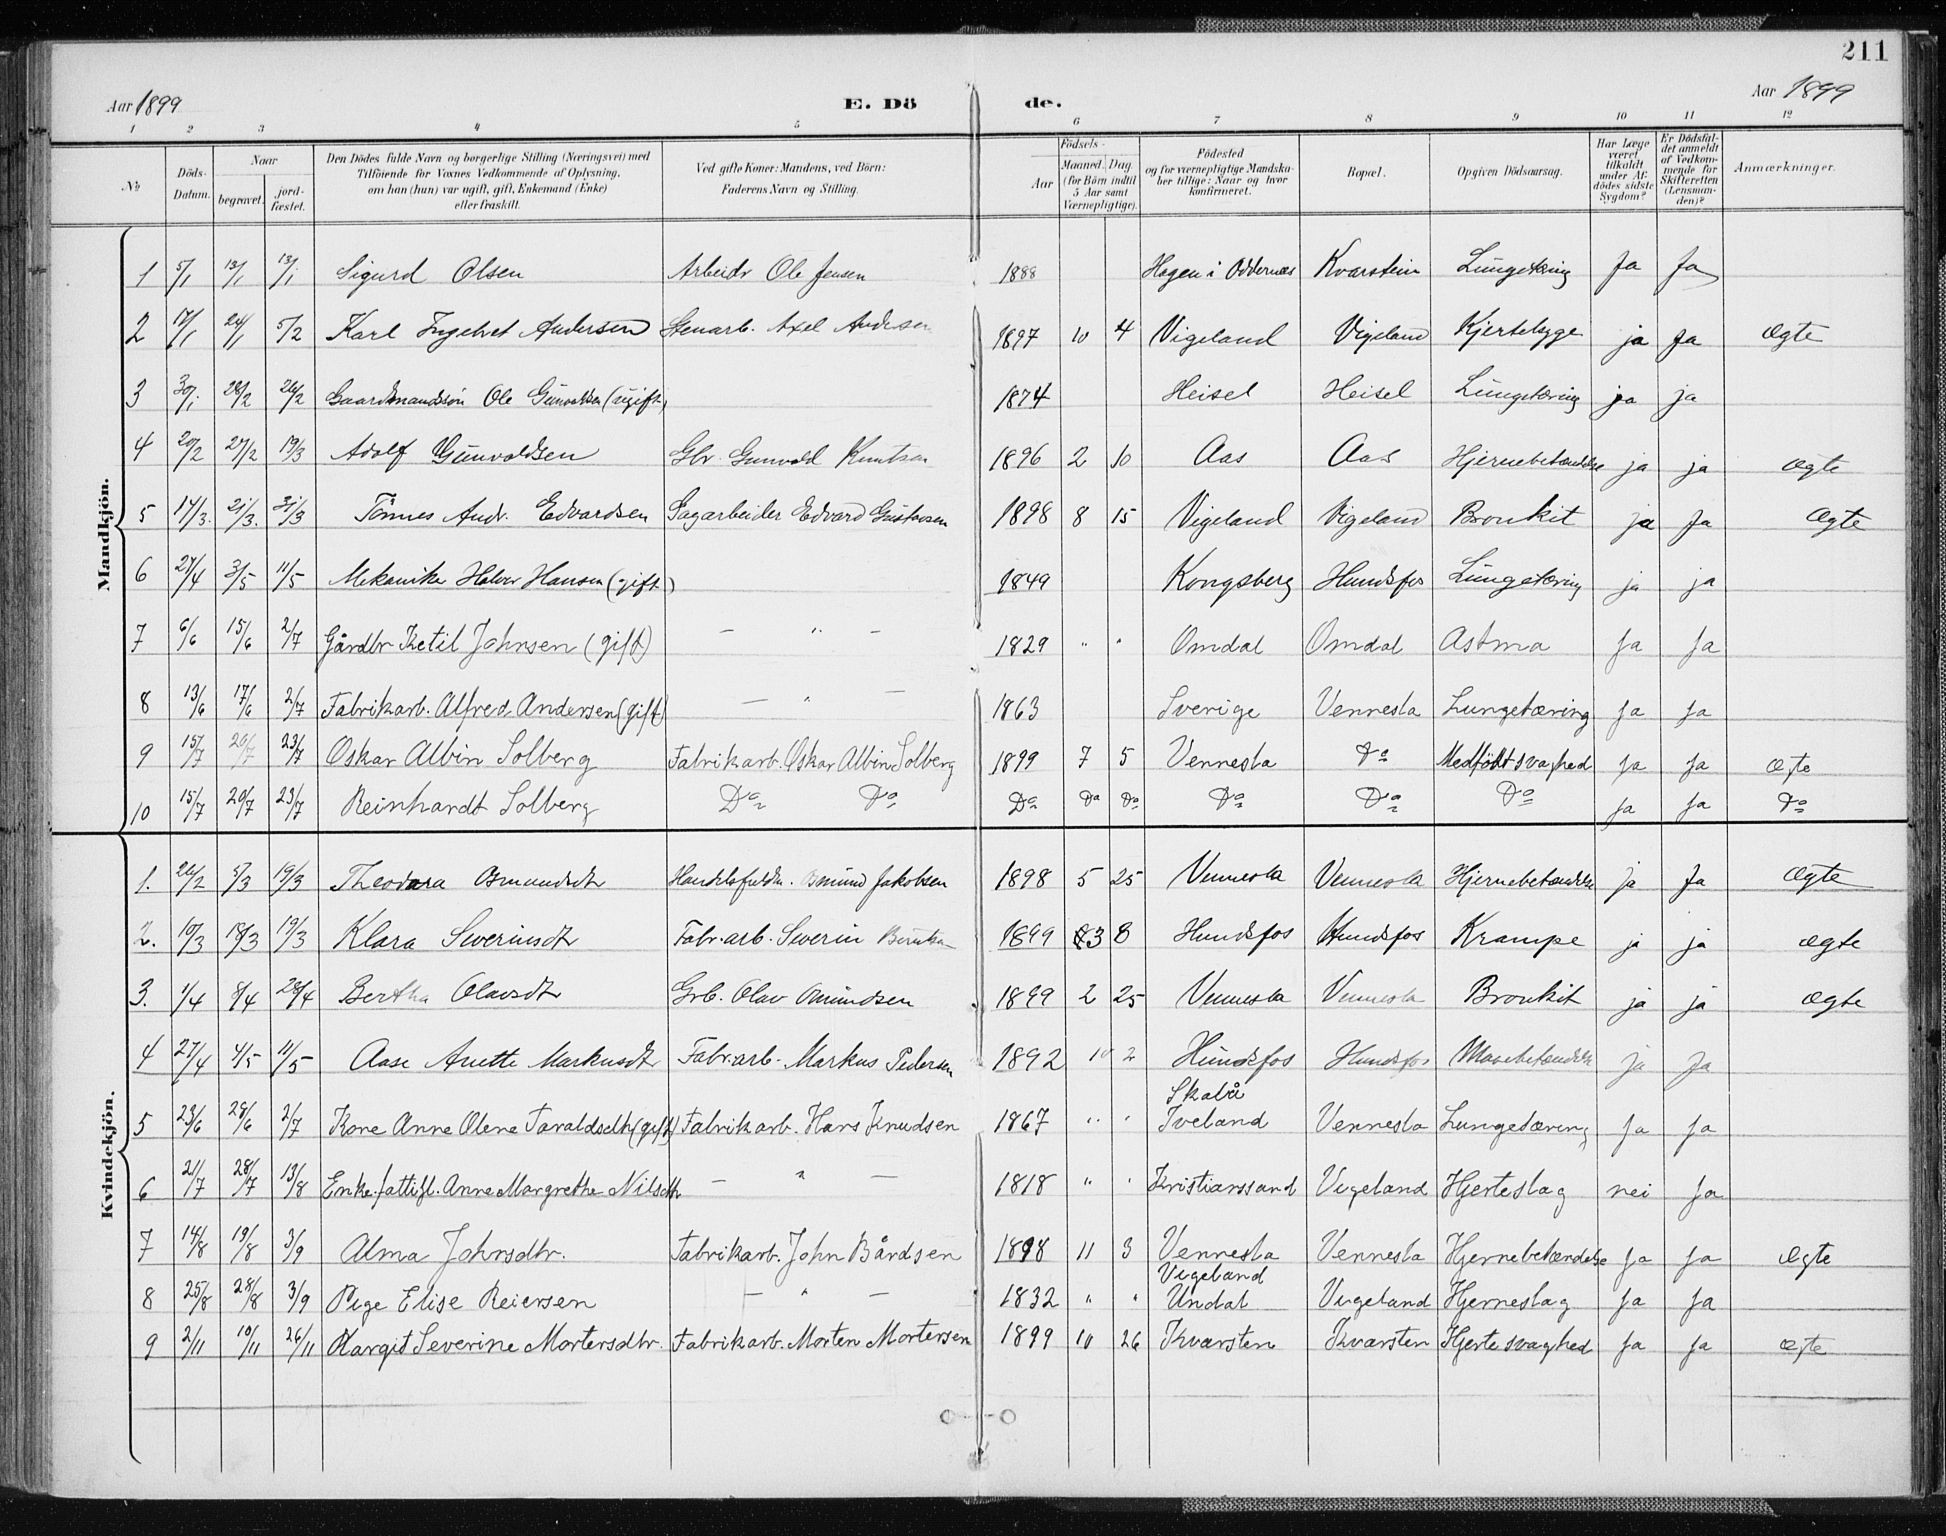 211
Aar 1899 E. Dö de. Aar 1899
1 2 3 4 5 6 7 8 9 10 11 12
No
Döds-Datum.
Naar
begravet. jordfæstet.
Den Dödes fulde Navn og borgerlige Stilling (Næringsvei) med
Tilföiende for Voxnes Vedkommende af Oplysning,
om han (hun) var ugift, gift, Enkemand (Enke)
eller fraskilt.
Ved gifte Koner: Mandens, ved Börn:
Faderens Navn og Stilling.
Födsels-
Aar Maaned. Dag.
(for Börn indtil
5 Aar samt
Værnepligtige).
Födested
og for værnepligtige Mandska-
ber tillige: Naar og hvor
konfirmeret.
Bopæl.
Opgiven Dödsaarsag.
Har Læge
været
tilkaldt
under Af-
dödes sidste
Sygdom?
Er Dödsfal-
det anmeldt
af Vedkom-
mende for
Skifteretten
(Lensman-
den)?
Anmærkninger.
Mandkjön.
1 5/1 13/1 13/1 Sigurd Olsen Arbeidr Ole Jensen 1888 Hagen i Oddernæs Kvarstein Lungetæring Ja Ja
2 17/1 24/1 5/2 Karl Ingelvet Andersen Stenarb. Axel Andersen 1897 10 4 Vigeland Vigeland ja Ja Ægte
3 30/1 26/2 Gaardmandssön Ole Gunvaldsen (ugift) 1874 Heisel Heisel Lungetæring ja ja
4 20/2 27/2 19/3 Adolf Gunvaldsen Gbr. Gunvald Knutsen 1896 2 10 Aas Aas Hjernebetændelse ja ja ægte
5 14/3. 21/3. 31/3 Tönnes Andr. Edvardsen Sagarbeider Edvard Gustavsen 1898 8 15 Vigeland Vigeland Bronkit ja Ja Ægte
6 27/4 3/5 11/5 Mekaniker Halvor Hansen (gift) 1849 Kongsberg Hundsfos Lungetæring ja ja
7 6/6 15/6 2/7 Gårdbr Ketil Johnsen (gift) — " — 1829 " " Omdal Omdal Astma Ja Ja
8 13/6 17/6 2/7 Fabrikarb. Alfred Andersen (gift) — " — 1863 Sverige Vennesla Lungetæring Ja Ja
9 15/7 20/7 23/7 Oskar Albin Solberg Fabrikarb. Oskar Albin Solberg 1899 7 5 Vennesla Do Medfödt svaghed Ja Ja ægte
10 15/7 20/7 23/7 Reinhardt Solberg Do Do Do Do Do Do Do Do Ja Ja Do
Kvindekjön.
1. 26/2 5/3 19/3 Theodora Omundsdt Omund Jakobsen 1898 5 25 Vennesla Vennesla Hjernebetændelse ja Ja Ægte
2. 10/3 18/3 19/3 Klara Severinsdt Fabr.arb. Severin 1899 3 8 Hundsfos Hundsfos Krampe ja ja ægte
3. 1/4 8/4 28/4 Bertha Olavsdt Grb. Olav Omundsen 1899 2 25 Vennesla Vennesla Bronkit ja ja Ægte
4 27/4 4/5 11/5 Aase Anette Markusdt Fabr.arb. Markus Pedersen 1892 10 2 Hundsfos Hundsfos Mavebetændelse ja Ja
5 23/6 29/6 2/7 Kone Anne Olene Taraldsdtr (gift) Fabrikarb. Hans Knudsen 1867 " " Skalrå
Iveland Vennesla Lungetæring Ja Ja
6 21/7 28/7 13/8 Enke. fattigl. Anne Margrethe Nilsdtr — " — 1818 " " Kristianssand Vigeland Hjerteslag nei Ja
7 14/8 19/8 3/9 Alma Johnsdtr. Fabrikarb. John Bårdsen 1898 11 3 Vennesla Vennesla Hjernebetændelse Ja Ja Ægte
8 25/8 28/8 3/9 Pige Elise Reiersen — " — 1832 " " Vigeland
Undal Vigeland Hjerneslag Ja Ja
9 2/11 10/11 26/11 Margit Severine Mortensdtr. Fabrikarb. Morten Mortensen 1899 10 26 Kvarsten Kvarsten Hjertesvaghed Ja Ja ægte